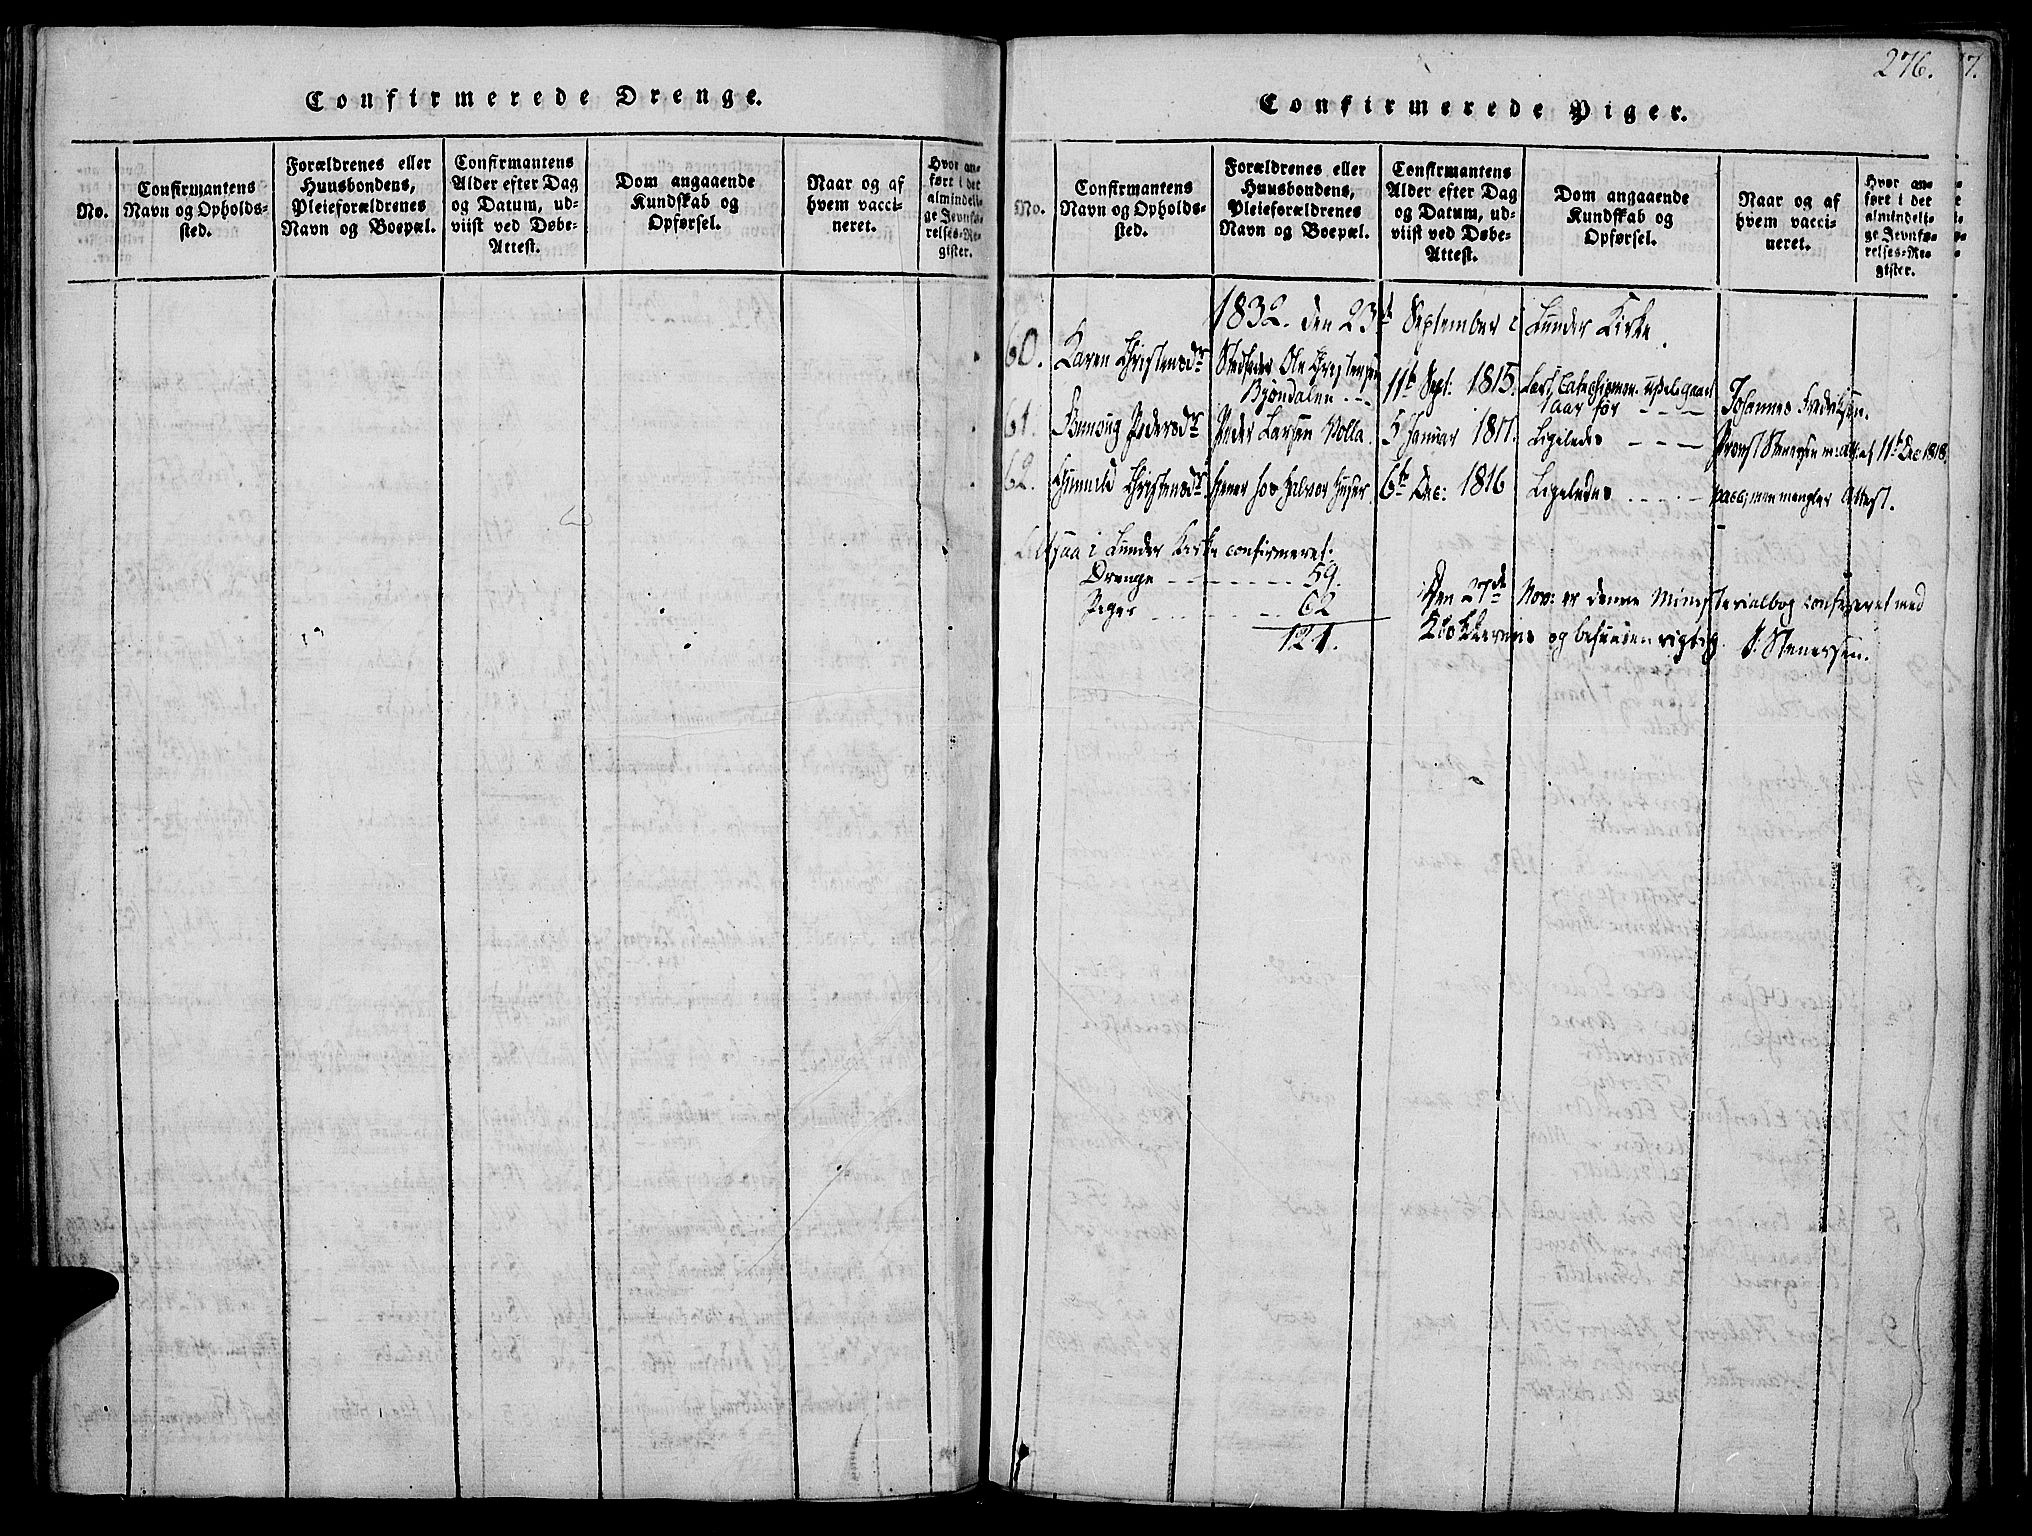 Confirmerede Drenge.
No.
Confirmantens Navn og Opholds-sted.
Forældrenes eller Huusbondens, Pleieforældrenes Navn og Boepæl.
Confirmantens Alder efter Dag og Datum, ud-viist ved Døbe-Attest.
Dom angaaende Kundskab og Opførsel.
Naar og af hvem vacci-neret.
Hvor an-ført i det almindeli-ge Jevnfø-relses-Re-gister.
276.
7.
Confirmerede Piger.
No.
Confirmantens Navn og Opholds-sted.
Forældrenes eller Huusbondens, Pleieforældrenes Navn og Boepæl.
Confirmantens Alder efter Dag og Datum, ud-viist ved Døbe-Attest.
Dom angaaende Kundskab og Opførsel.
Naar og af hvem vacci-neret.
Hvor an-ført i det almindeli-ge Jevnfø-relses-Re-gister.
1832. den 23de September i Lunder Kirke.
60. Karen Christensdr Stedfader Ole Christensen
Bjøndalen 11te Sept: 1815. Læst Catechismen
1 aar før Johannes Fredriksen.
61. Pedersdr Peder Larsen Molla. 5 Januar 1817. Ligeledes Provst Stenersen 11te Dec 1818
62. Gunnild Christensdr tjener hos Halvor 6te Dec: 1816 Ligeledes vacc; men mangler Attest.
Altsaa i Lunder Kirke confirmeret:
Drenge 59.
Piger 62
121.
Den 27de Nov: er denne Ministerialbog confereret med
Klokkerens og befunden rigtig. J. Stenersen.